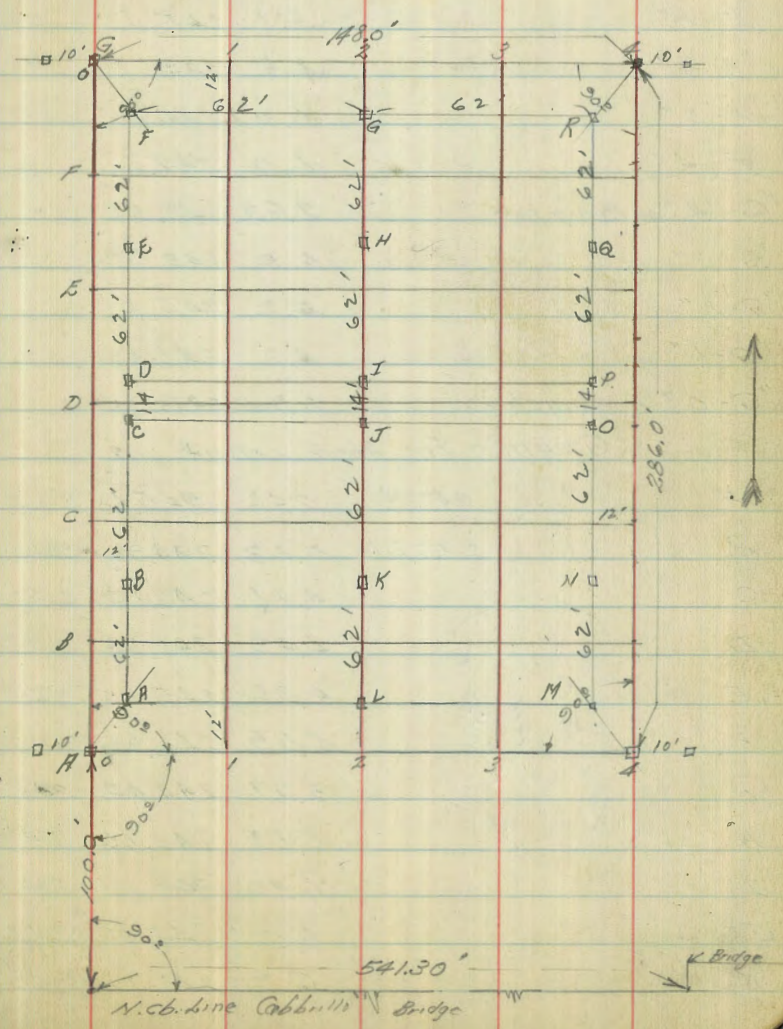 148.0'
10' G 1 2 3 4 10'
0 12'
90° 62' 62' 90°
F G R
F 62' 62' 62'
E H Q
E
62' 62' 62'
D I P
D 14 14' 14
C J O
286.0'
62' 62' 62'
C 12'
12'
B K N
62' 62' 62'
B
A L M
90° 12' 90°
10' 10'
A 0 1 2 3 4
90°
100.0'
90°
541.30' Bridge
N. cb. Line Cabbrillo Bridge